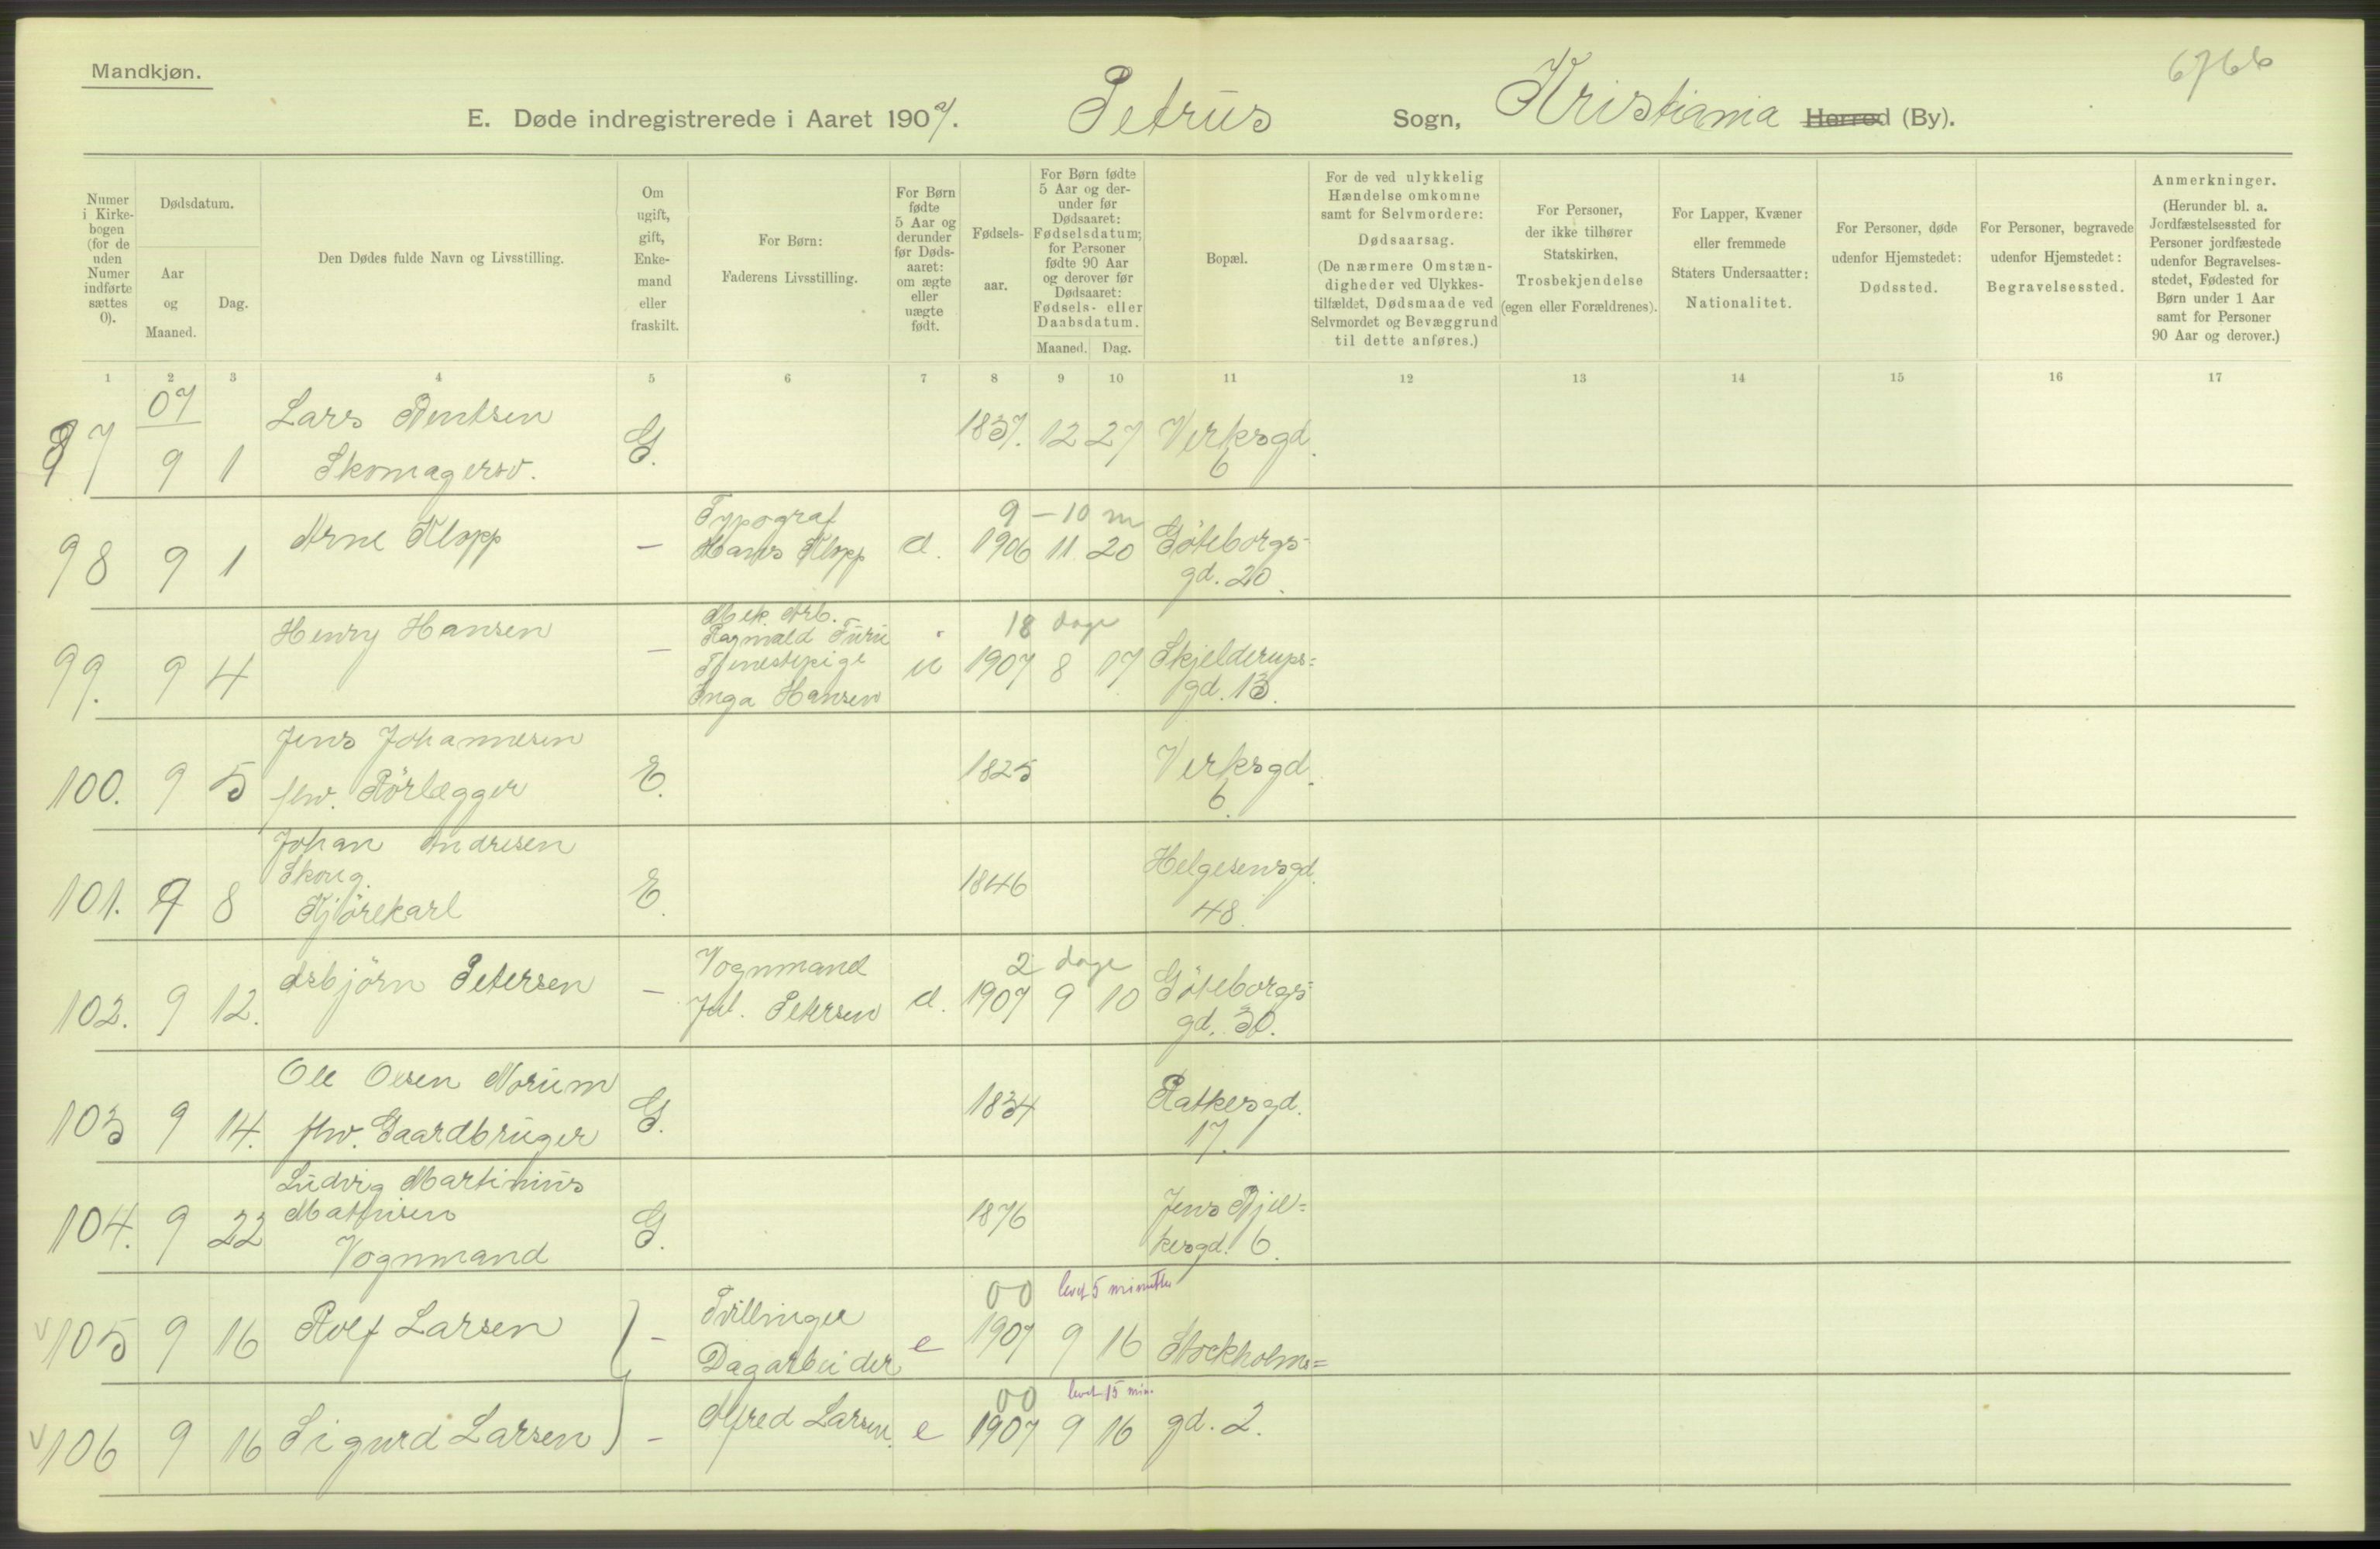 Mandkjøn.
6766
E. Døde indregistrerede i Aaret 1907. Petrus Sogn, Kristiania Herred (By).
Numer i Kirkebogen (for de uden Numer indførte sættes 0).
Dødsdatum.
Aar og Maaned.
Dag.
Den Dødes fulde Navn og Livsstilling.
Om ugift, gift, Enkemand eller fraskilt.
For Børn: Faderens Livsstilling.
For Børn fødte 5 Aar og derunder før Dødsaaret: om ægte eller uægte født.
Fødselsaar.
For Børn fødte 5 Aar og derunder før Dødsaaret: Fødselsdatum; for Personer fødte 90 Aar og derover før Dødsaaret: Fødsels- eller Daabsdatum.
Maaned. Dag.
Bopæl.
For de ved ulykkelig Hændelse omkomne samt for Selvmordere: Dødsaarsag. (De nærmere Omstændigheder ved Ulykkestilfældet, Dødsmaade ved Selvmordet og Bevæggrund til dette anføres.)
For Personer, der ikke tilhører Statskirken, Trosbekjendelse (egen eller Forældrenes).
For Lapper, Kvæner eller fremmede Staters Undersaatter: Nationalitet.
For Personer, døde udenfor Hjemstedet: Dødssted.
For Personer, begravede udenfor Hjemstedet: Begravelsessted.
Anmerkninger. (Herunder bl. a. Jordfæstelsessted for Personer jordfæstede udenfor Begravelsesstedet, Fødested for Børn under 1 Aar samt for Personer 90 Aar og derover.)
1 2 3 4 5 6 7 8 9 10 11 12 13 14 15 16 17
07
97 9 1 Lars Bentsen G. 1837. 12 27 Verksgd.
Skomagersv. 6
9 - 10 m
98 9 1 Arne Klopp - Typograf
Hans Klopp d. 1906 11 20 Göteborgs-
gd. 20.
18 dage
99. 9 4 Henry Hansen - Mek. Arb.
Ragnvald Furu
Tjenestepige u 1907 8 17 Skjelderups=
Inga Hansen gd. 13.
100. 9 5 Jens Johannesen E. 1825 Verksgd.
fhv. Rörlægger 6.
101. 9 8 Johan Andresen E. 1846 Helgesensgd.
Skoug.
Kjörekarl 48.
2 dage
102. 9 12. Asbjörn Petersen - Vognmand
Jul. Petersen d. 1907 9 10 Göteborgs=
gd. 30.
103 9 14. Ole Olsen Norum G. 1834 Ratkesgd.
fhv. Gaardbruger 17.
104. 9 22 Ludvig Martinius G. 1876 Jens Bjel=
Mathisen kesgd. 6.
Vognmand
00 levet 5 minutter
v 105 9 16 Rolf Larsen - Tvillinger
Dagarbeider e 1907 9 16 Stockholms=
00 levet 15 min.
v 106 9 16 Sigurd Larsen - Alfred Larsen. e 1907 9 16 gd. 2.